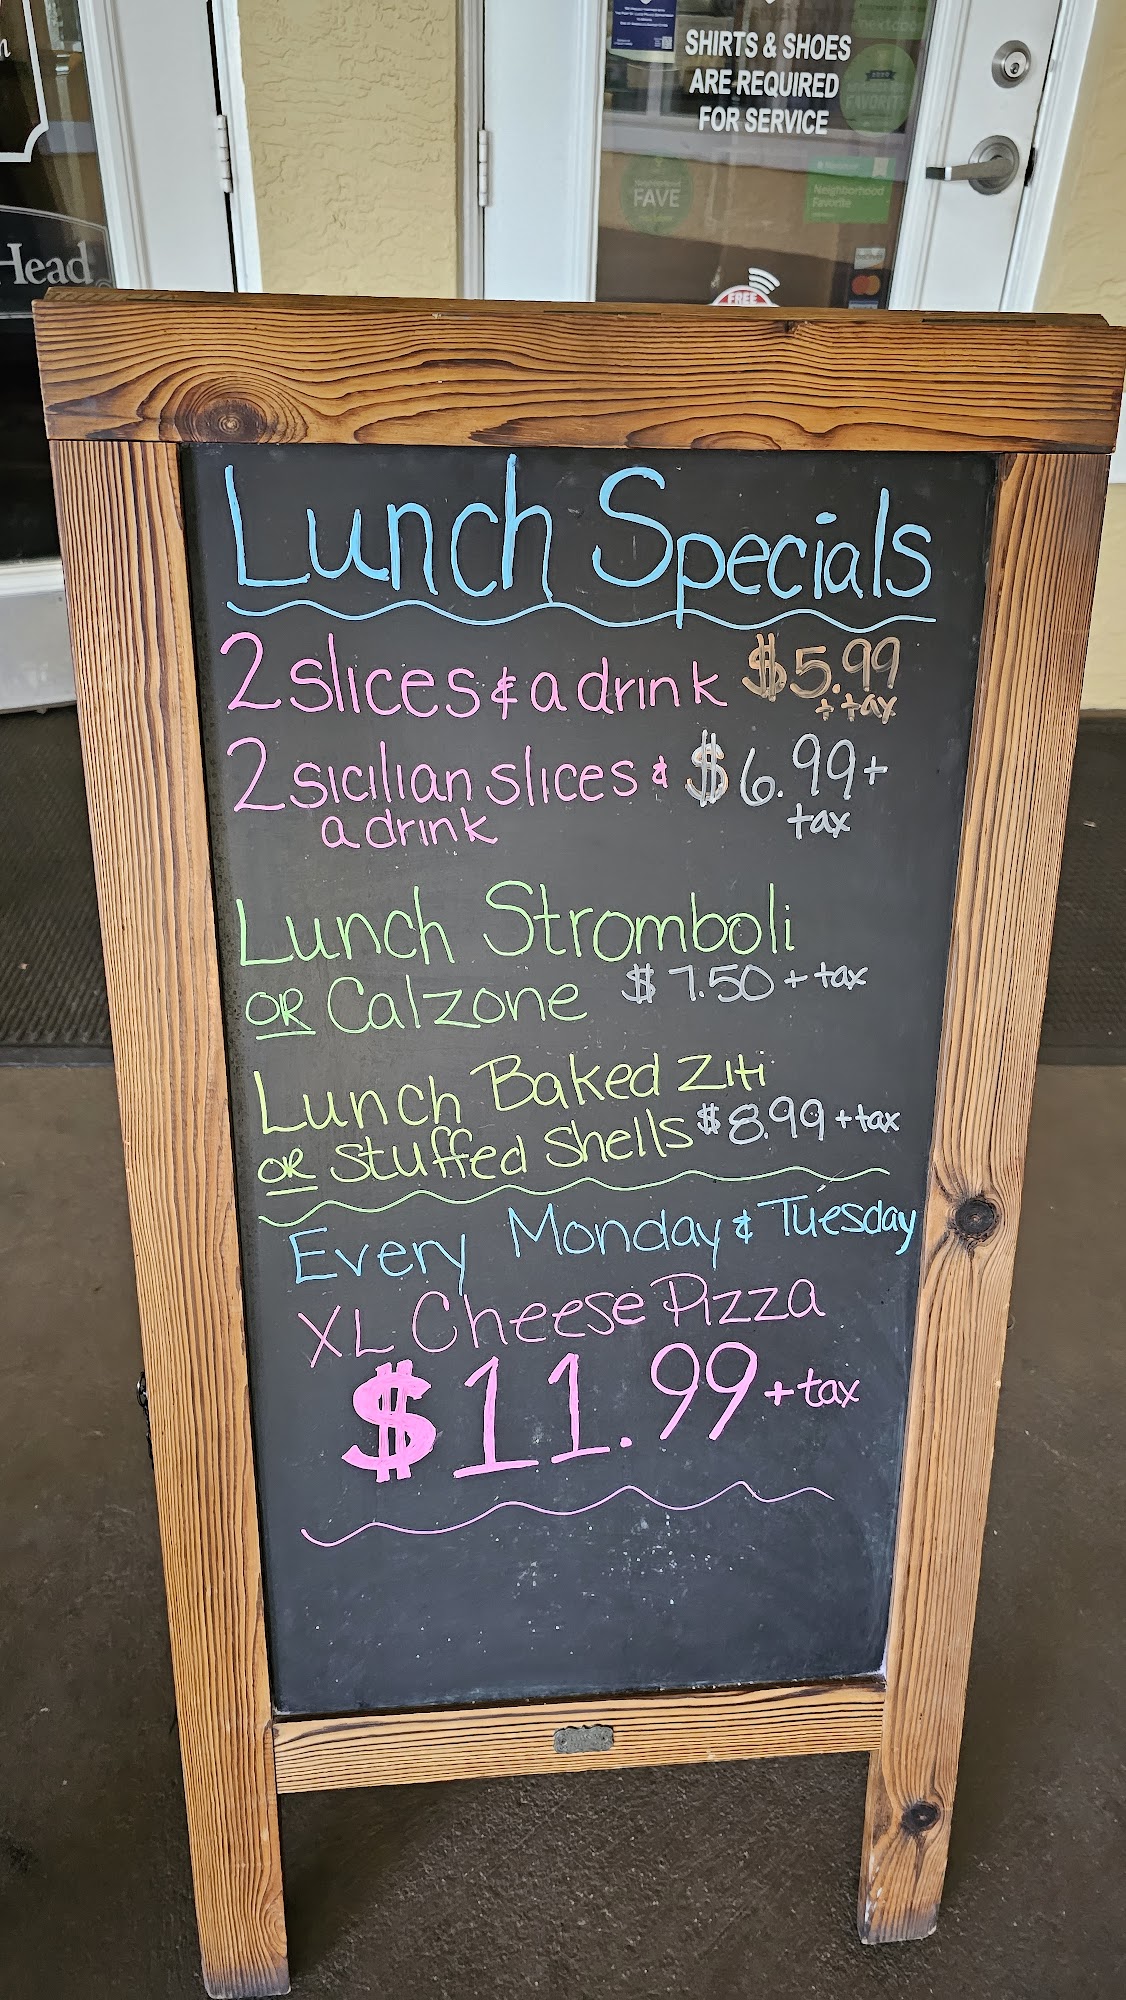 SHIRTS & SHOES
ARE REQUIRED
FOR SERVICE
FAVORITE
Neighborhood
FAVE
Neighborhood
Favorite
Head
FREE
Lunch Specials
2 slices & a drink $5.99
+ tax
2 sicilian slices & $6.99+
a drink tax
Lunch Stromboli
OR Calzone $7.50 + tax
Lunch Baked Ziti
OR Stuffed Shells $8.99 + tax
Every Monday & Tuesday
XL Cheese Pizza
$11.99 + tax